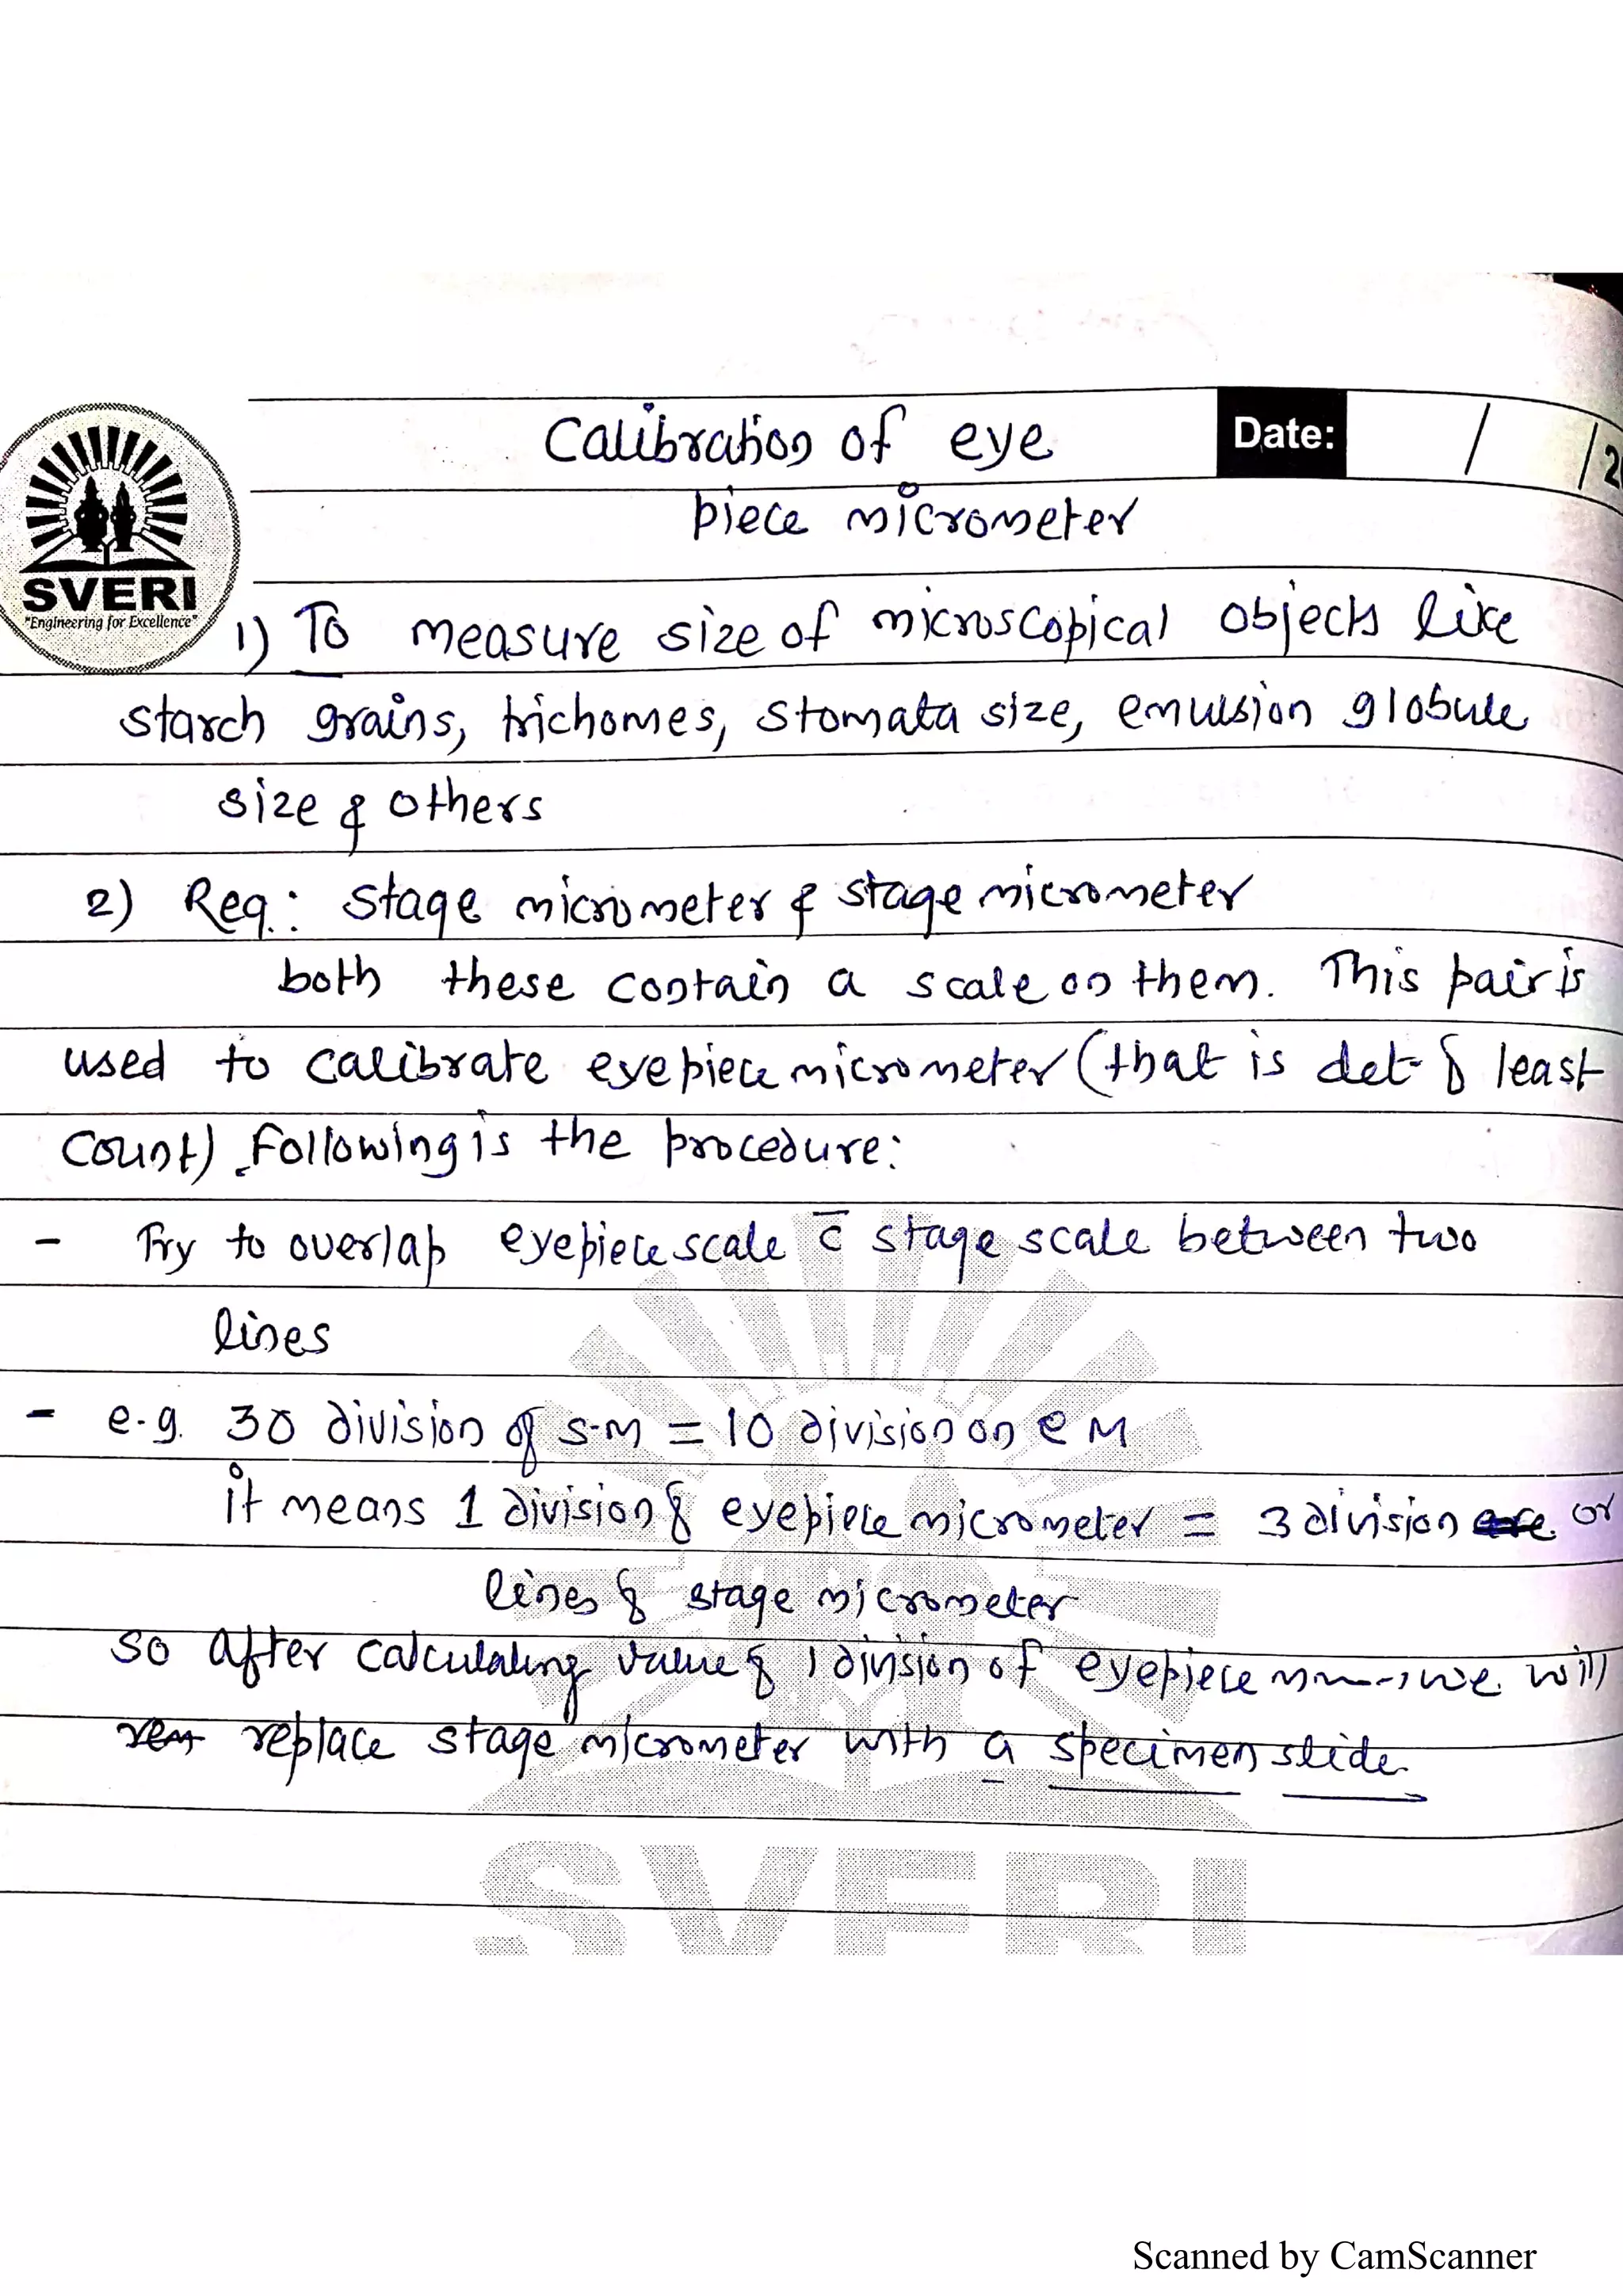 Calibration of eye
Date: / / 2
piece micrometer
SVERI
"Engineering for Excellence"
1) To measure size of microscopical objects like
starch grains, trichomes, stomata size, emulsion globule
size & others
2) Req.: stage micrometer & stage micrometer
both these contain a scale on them. This pair is
used to calibrate eyepiece micrometer (that is det of least
count). Following is the procedure:
- Try to overlap eyepiece scale c̅ stage scale between two
lines
- e.g. 30 division of S.M = 10 division on e M
it means 1 division of eyepiece micrometer = 3 division or
lines of stage micrometer
so after calculating value of 1 division of eyepiece we will
replace stage micrometer with a specimen slide
SVERI
Scanned by CamScanner